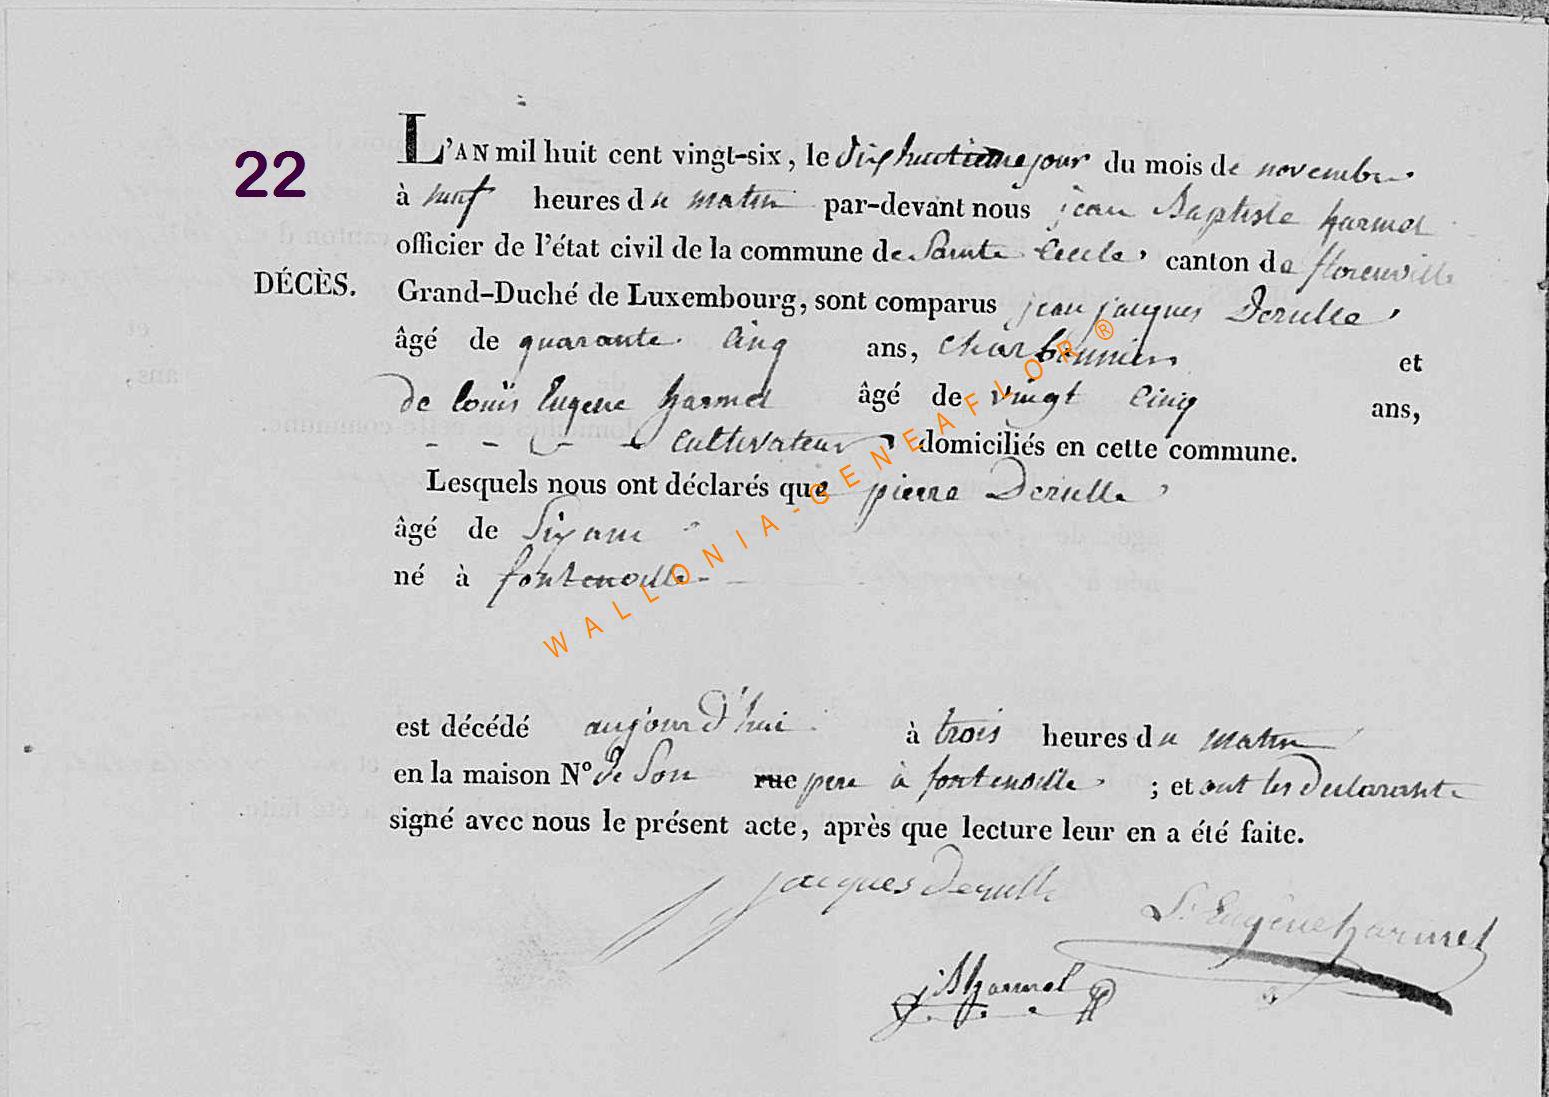 22
L'AN mil huit cent vingt-six, le dix huitieme jour du mois de novembre
à neuf heures du matin par-devant nous jean Baptiste harmel
officier de l'état civil de la commune de Sainte Cecile, canton de florenville
DÉCÈS.
Grand-Duché de Luxembourg, sont comparus jean jacques Derulle,
âgé de quarante cinq ans, charbonnier et
de louis Eugene harmel âgé de vingt cinq ans,
cultivateur, domiciliés en cette commune.
Lesquels nous ont déclarés que pierre Derulle,
âgé de Six ans
né à fontenoille
est décédé aujourd'hui à trois heures du matin
en la maison N° de Son rue pere à fontenoille, ; et ont les declarants
signé avec nous le présent acte, après que lecture leur en a été faite.
j jacques derulle
L. Eugène harmel
jBharmel
WALLONIA-GENEAFLOR®